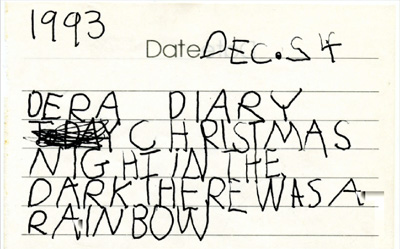 1993
Date DEC. S4
DERA DIARY
CHRISTMAS
NIGHT IN THE
DARK THERE WAS A
RAINBOW